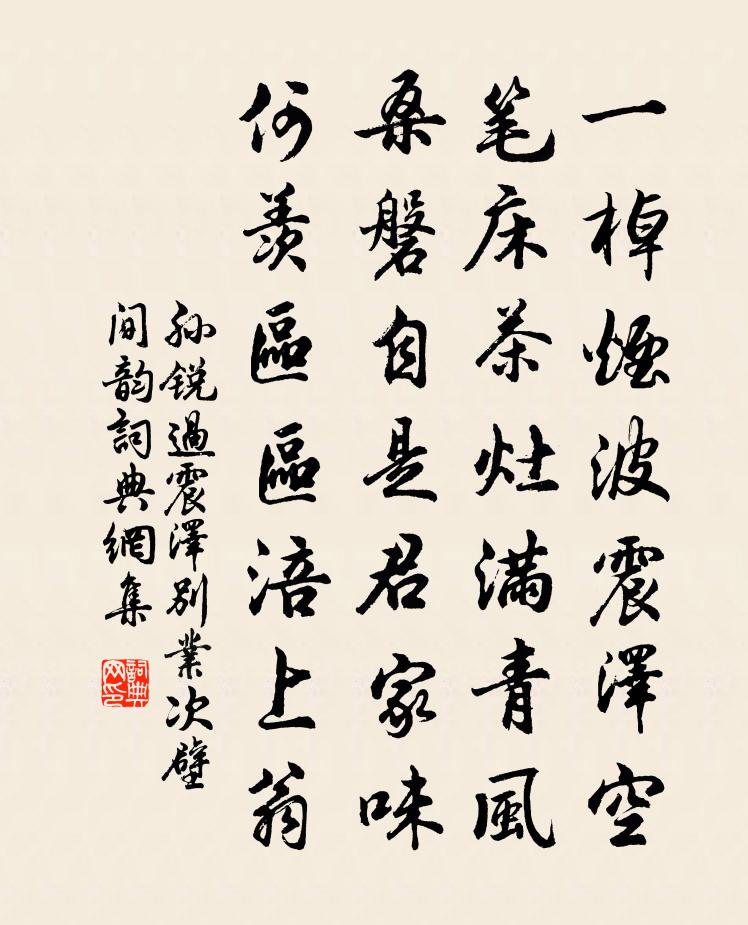 一棹煙波震澤空
笔床茶灶滿青風
桑磐自是君家味
何羨區區涪上翁
孫锐過震澤別業次壁
間韵詞典網集
詞典
网印